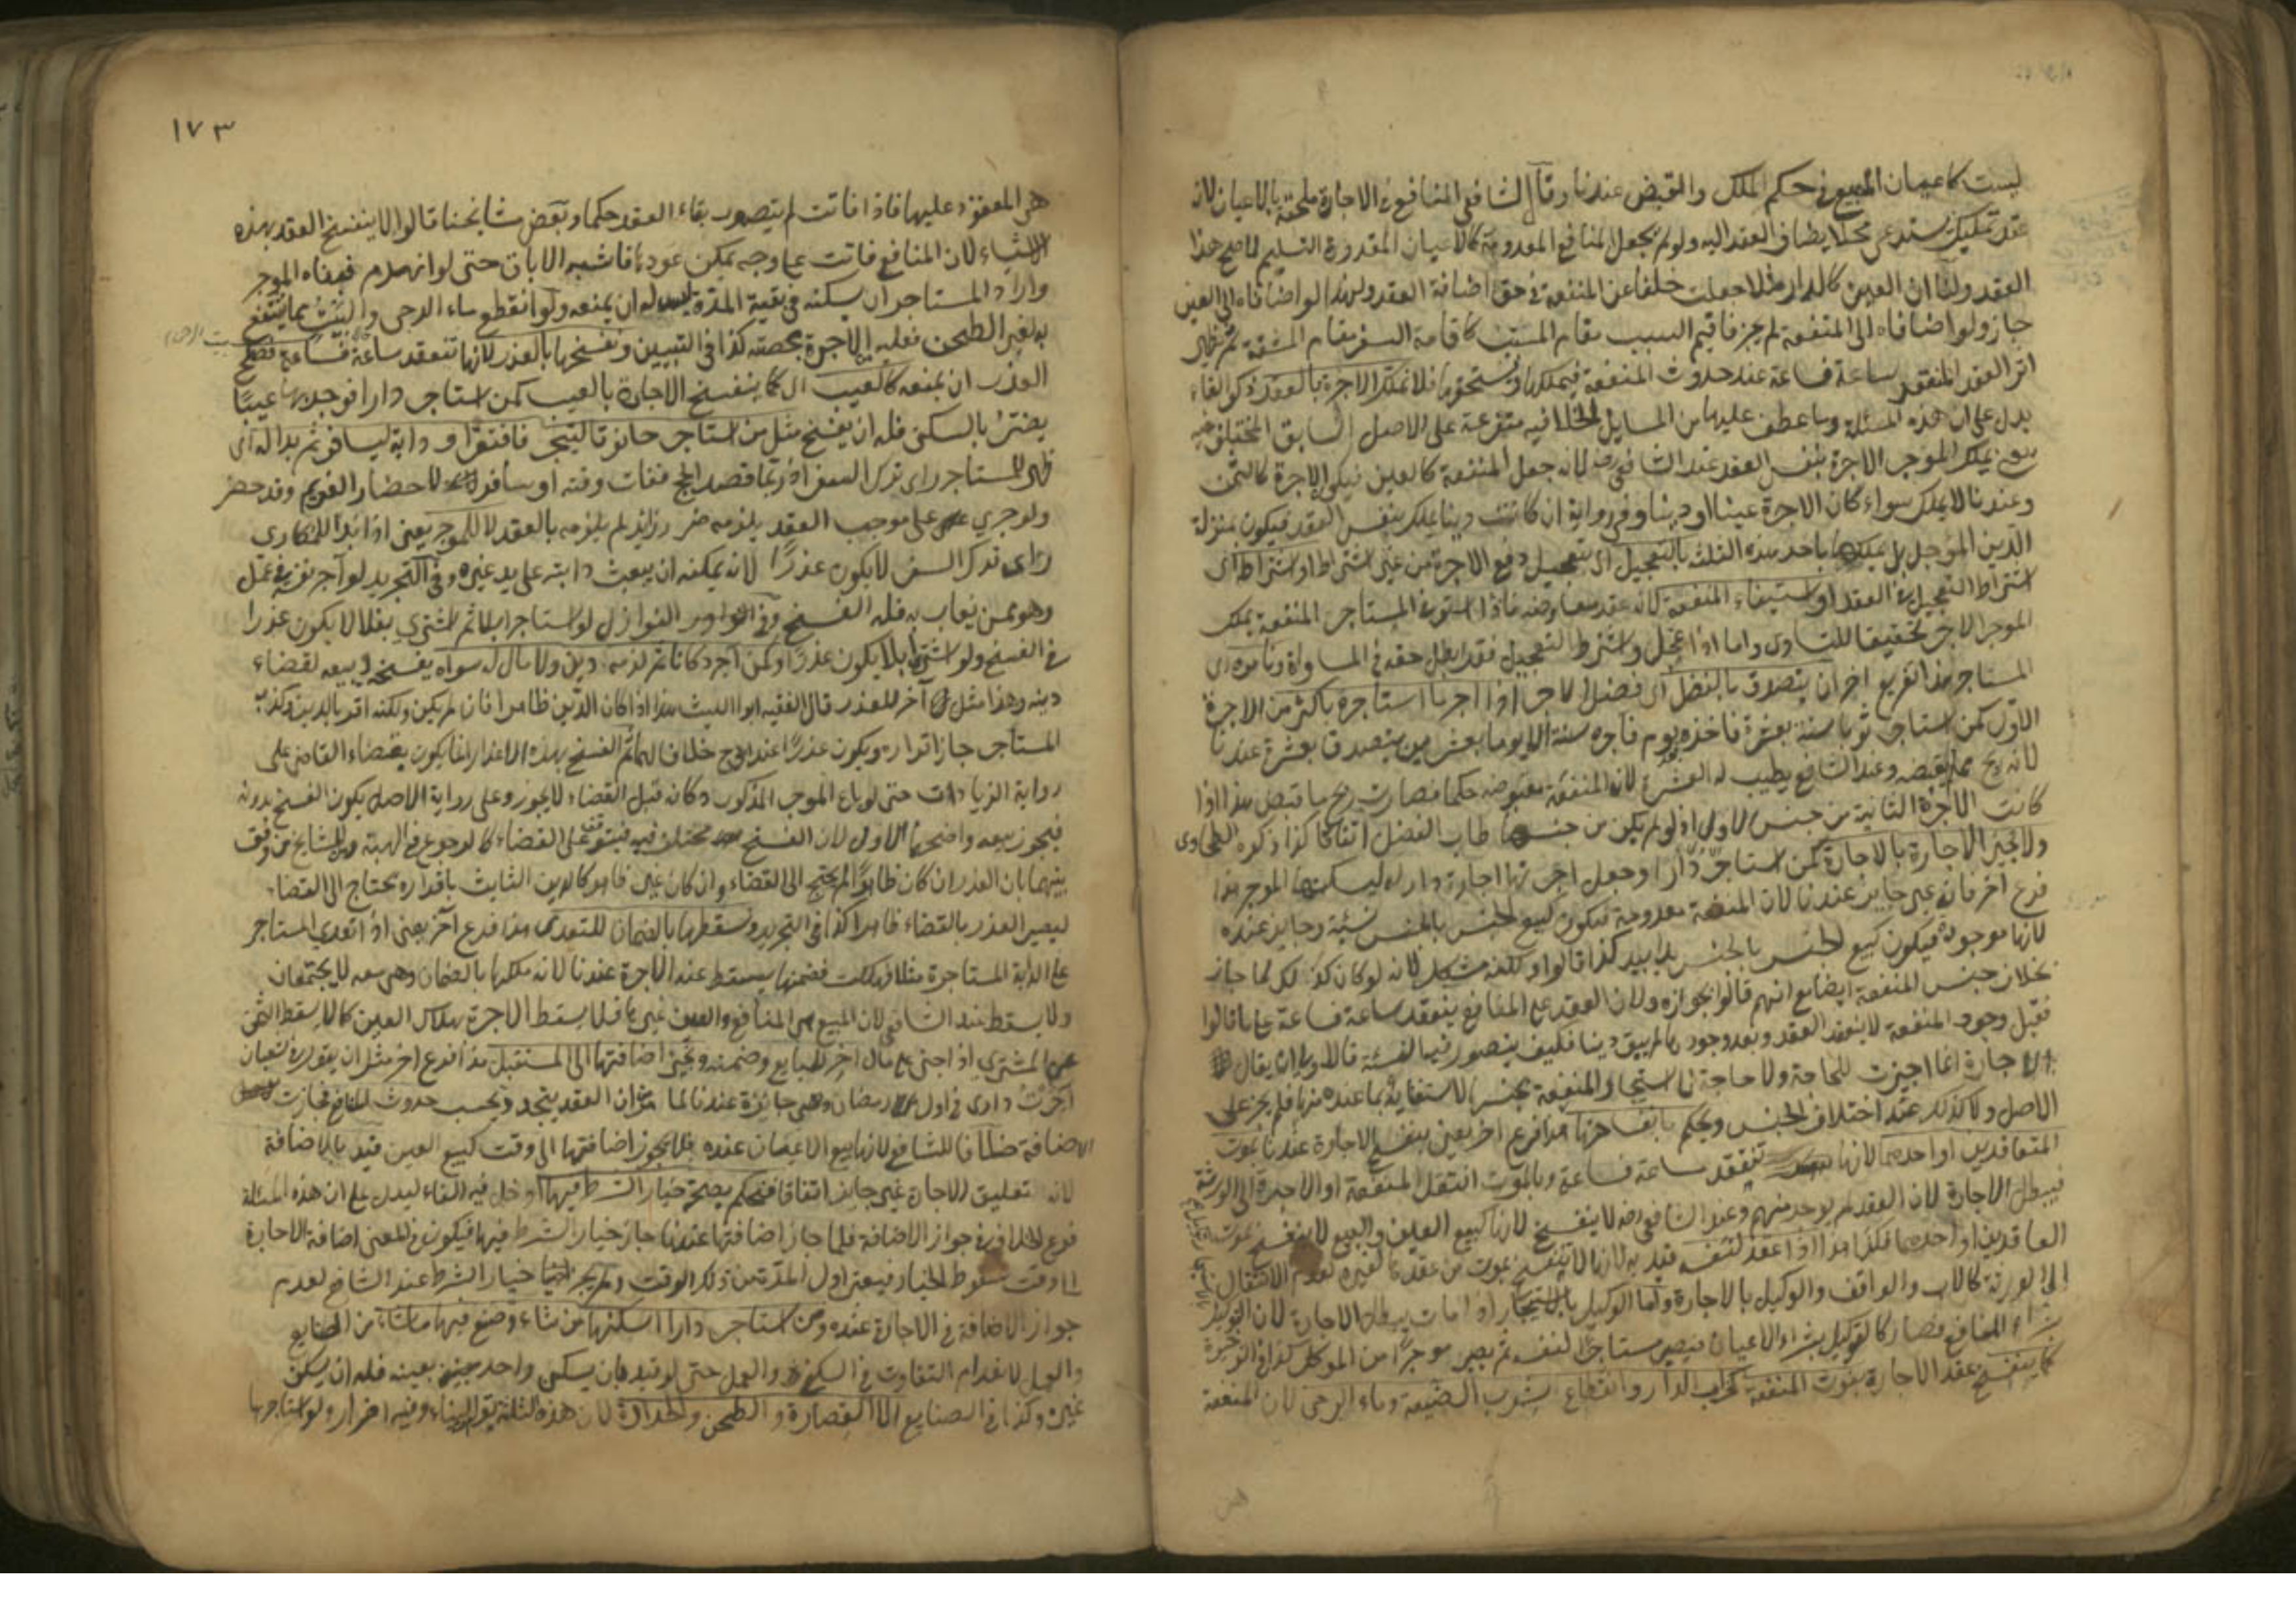 ليست كاعيان المبيع في حكم الملك والقبض عندنا وقال الشافعي المنافع في الاجارة ملحقة بالاعيان لانه
عقد تمليك يستدعي محلا يضاف العقد اليه ولو لم يجعل المنافع المعدومة كالاعيان المقدورة التسليم لما صح هذا
العقد ولنا ان العين كالدار مثلا جعلت خلفا عن المنفعة في حق اضافة العقد ولهذا لو اضافاه الى العين
جاز ولو اضافاه الى المنفعة لم يجز فاقيم السبب مقام المسبب كاقامة السفر مقام المشقة ثم يظهر
اثر العقد المنعقد ساعة فساعة عند حدوث المنفعة فيملكها ويستحقها فلا تملك الاجرة بالعقد ذكر الفاء
يدل على ان هذه المسئلة وما عطف عليها من المسايل الخلافية متفرعة على الاصل السابق المختلف فيه
يعني يملك الموجر الاجرة بنفس العقد عند الشافعي رضه لانه جعل المنفعة كالعين فيكون الاجرة كالثمن
وعندنا لا يملك سواء كان الاجرة عينا او دينا وفي رواية ان كانت دينا يملك بنفس العقد فيكون بمنزلة
الدين المؤجل بل باحد هذه الثلث بالتعجيل اي تعجيل دفع الاجرة من غير اشتراط او اشتراطه اي
اشتراط التعجيل في العقد او استيفاء المنفعة لانه عقد معاوضة فاذا استوفى المستاجر المنفعة يملك
الموجر الاجر تحقيقا للتساوي واما اذا عجل او اشترط التعجيل فقد ابطل حقه في المساواة ونامره اي
المستاجر هذا تفريع اخر ان يتصدق بالفضل اي فضل الاجر اذا اجر ما استاجره باكثر من الاجرة
الاول كمن استاجر ثوبا سنة بعشرة فاخذه يوم فاجره سنة الا يوما بعشرين يتصدق بعشرة عندنا
لانه ربح مما لم يقبضه وعند الشافعي يطيب له العشرة لان المنفعة مقبوضة حكما فصارت ربح ما قبض هذا اذا
كانت الاجرة الثانية من جنس الاول اذ لو لم يكن من جنسها طاب الفضل اتفاقا كذا ذكره الطحاوي
ولا نجيز الاجارة بالاجارة كمن استاجر دارا وجعل اجرتها اجارة دار له ليسكنها الموجر هذا
فرع اخر فانه غير جايز عندنا لان المنفعة معدومة فيكون كبيع الجنس بالجنس نسيئة وجايز عنده
لانها موجودة فيكون كبيع الجنس بالجنس يدا بيد كذا قالوا ولكنه مشكل لانه لو كان كذلك لما جاز
بخلاف جنس المنفعة ايضا مع انهم قالوا بجوازه ولان العقد على المنافع ينعقد ساعة فساعة على ما قالوا
فقبل وجود المنفعة لا ينعقد العقد وبعد وجودها لم يبق دينا فكيف يتصور فيها النسئة فالاولى ان يقال
الاجارة انما اجيزت للحاجة ولا حاجة الى استيجار المنفعة بجنسها لاستغنائه بما عنده منها فلم يجز على
الاصل ولا كذلك عند اختلاف الجنس ونحكم بانفساخها هذا فرع اخر يعني ينفسخ الاجارة عندنا بموت
المتعاقدين او احدهما لانها تنعقد ساعة فساعة وبالموت انتقل المنفعة او الاجرة الى الورثة
فيبطل الاجارة لان العقد لم يوجد منهم وعند الشافعي رضه لا ينفسخ لانها كبيع العين والبيع لا ينفسخ بموت
العاقدين او احدهما فكذا هذا اذا عقد لنفسه قيد به لانها لا تنفسخ بموت من عقدها لغيره لعدم الانتقال
الى الورثة كالاب والواقف والوكيل بالاجارة واما الوكيل بالاستيجار اذا مات يبطل الاجارة لان التوكيل
شراء المنافع فصار كالتوكيل بشراء الاعيان فيصير مستاجرا لنفسه ثم يصير موجرا من الموكل كذا في الذخيرة
كما ينفسخ عقد الاجارة بفوت المنفعة كخراب الدار وانقطاع شرب الضيعة وماء الرحى لان المنفعة
١٧٣
هي المعقود عليها فاذا فاتت لم يتصور بقاء العقد حكما وبعض مشايخنا قالوا لا ينفسخ العقد بهذه
الاشياء لان المنافع فاتت على وجه يمكن عودها فاشبه الاباق حتى لو انهدم فبناه الموجر
واراد المستاجر ان يسكنه في بقية المدة ليس له ان يمنعه ولو انقطع ماء الرحى والبيت مما ينتفع
به لغير الطحن فعليه الاجرة بحصته كذا في التبيين ونفسخها بالعذر لانها تنعقد ساعة فساعة فصلح
العذر ان يمنعه كالعيب اي كما ينفسخ الاجارة بالعيب كمن استاجر دارا فوجد بها عيبا
يضر بالسكنى فله ان يفسخ مثل من استاجر حانوتا ليتجر فافتقر او دابة ليسافر ثم بدا له اي
ظهر للمستاجر راي ترك السفر اذ ربما قصد الحج ففات وقته او سافر لاحضار الغريم وقد حضر
ولو جرى على موجب العقد يلزمه ضرر زايد لم يلزمه بالعقد لا للموجر يعني اذا بدا للمكاري
راي ترك السفر لا يكون عذرا لانه يمكنه ان يبعث دابته على يد غيره وفي التجريد لو آجر نفسه في عمل
وهو ممن يعاب به فله الفسخ وفي النوازل لو استاجر ابلا ثم اشترى بغلا لا يكون عذرا
في الفسخ ولو اشترى ابلا يكون عذرا وكمن اجر دكانا ثم لزمه دين ولا مال له سواه يفسخ ويبيعه لقضاء
دينه وهذا مثل آخر للعذر قال الفقيه ابو الليث هذا اذا كان الدين ظاهرا فان لم يكن ولكنه اقر بالدين وكذبه
المستاجر جاز اقراره ويكون عذرا عند ابي ح خلافا لهما ثم الفسخ بهذه الاعذار انما يكون بقضاء القاضي على
رواية الزيادات حتى لو باع الموجر المذكور دكانه قبل القضاء لا يجوز وعلى رواية الاصل يكون الفسخ بدونه
فيجوز بيعه واصحهما الاول لان الفسخ مختلف فيه فيتوقف على القضاء كالرجوع في الهبة ومن المشايخ من وفق
بينهما بان العذر ان كان ظاهرا لم يحتج الى القضاء وان كان غير ظاهر كالدين الثابت باقراره يحتاج الى القضاء
ليصير العذر بالقضاء ظاهرا كذا في التجريد ونسقطها بالضمان للتعدي هذا فرع آخر يعني اذا تعدى المستاجر
على الدابة المستاجرة مثلا فهلكت فضمنها يسقط عنه الاجرة عندنا لانه ملكها بالضمان وهي معه لا يجتمعان
ولا يسقط عند الشافعي لان المبيع هي المنافع والعين غيرها فلا يسقط الاجرة بهلاك العين كما لا يسقط الثمن
عن المشتري اذا جنى على مال اخر للبايع وضمنه ونجيز اضافتها الى المستقبل هذا فرع اخر مثل ان يقول في شعبان
آجرت داري في اول رمضان وهي جائزة عندنا لما مر ان العقد يتجدد بحسب حدوث المنافع فجازت
الاضافة خلافا للشافعي لانها بيع الاعيان عنده فلا يجوز اضافتها الى وقت كبيع العين قيد بالاضافة
لان تعليق الاجارة غير جايز اتفاقا فنحكم بصحة خيار الشرط فيها ادخل فيه الفاء ليدل على ان هذه المسئلة
فرع الخلاف في جواز الاضافة فلما جاز اضافتها عندنا جاز خيار الشرط فيها فيكون في المعنى اضافة الاجارة
الى وقت سقوط الخيار فيعتبر اول المدة من ذلك الوقت ولم يجز خيار الشرط عند الشافعي لعدم
جواز الاضافة في الاجارة عنده ومن استاجر دارا اسكنها من شاء وصنع فيها ما شاء من الصنايع
والعمل لانعدام التفاوت في السكنى والعمل حتى لو قيد بان يسكن واحد بعينه فله ان يسكن
غيره وكذا في الصنايع الا القصارة والطحن والحدادة لان هذه الثلثة توهن البناء وفيه اضرار ولو استاجرها